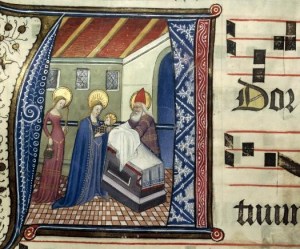 Dor
tuum